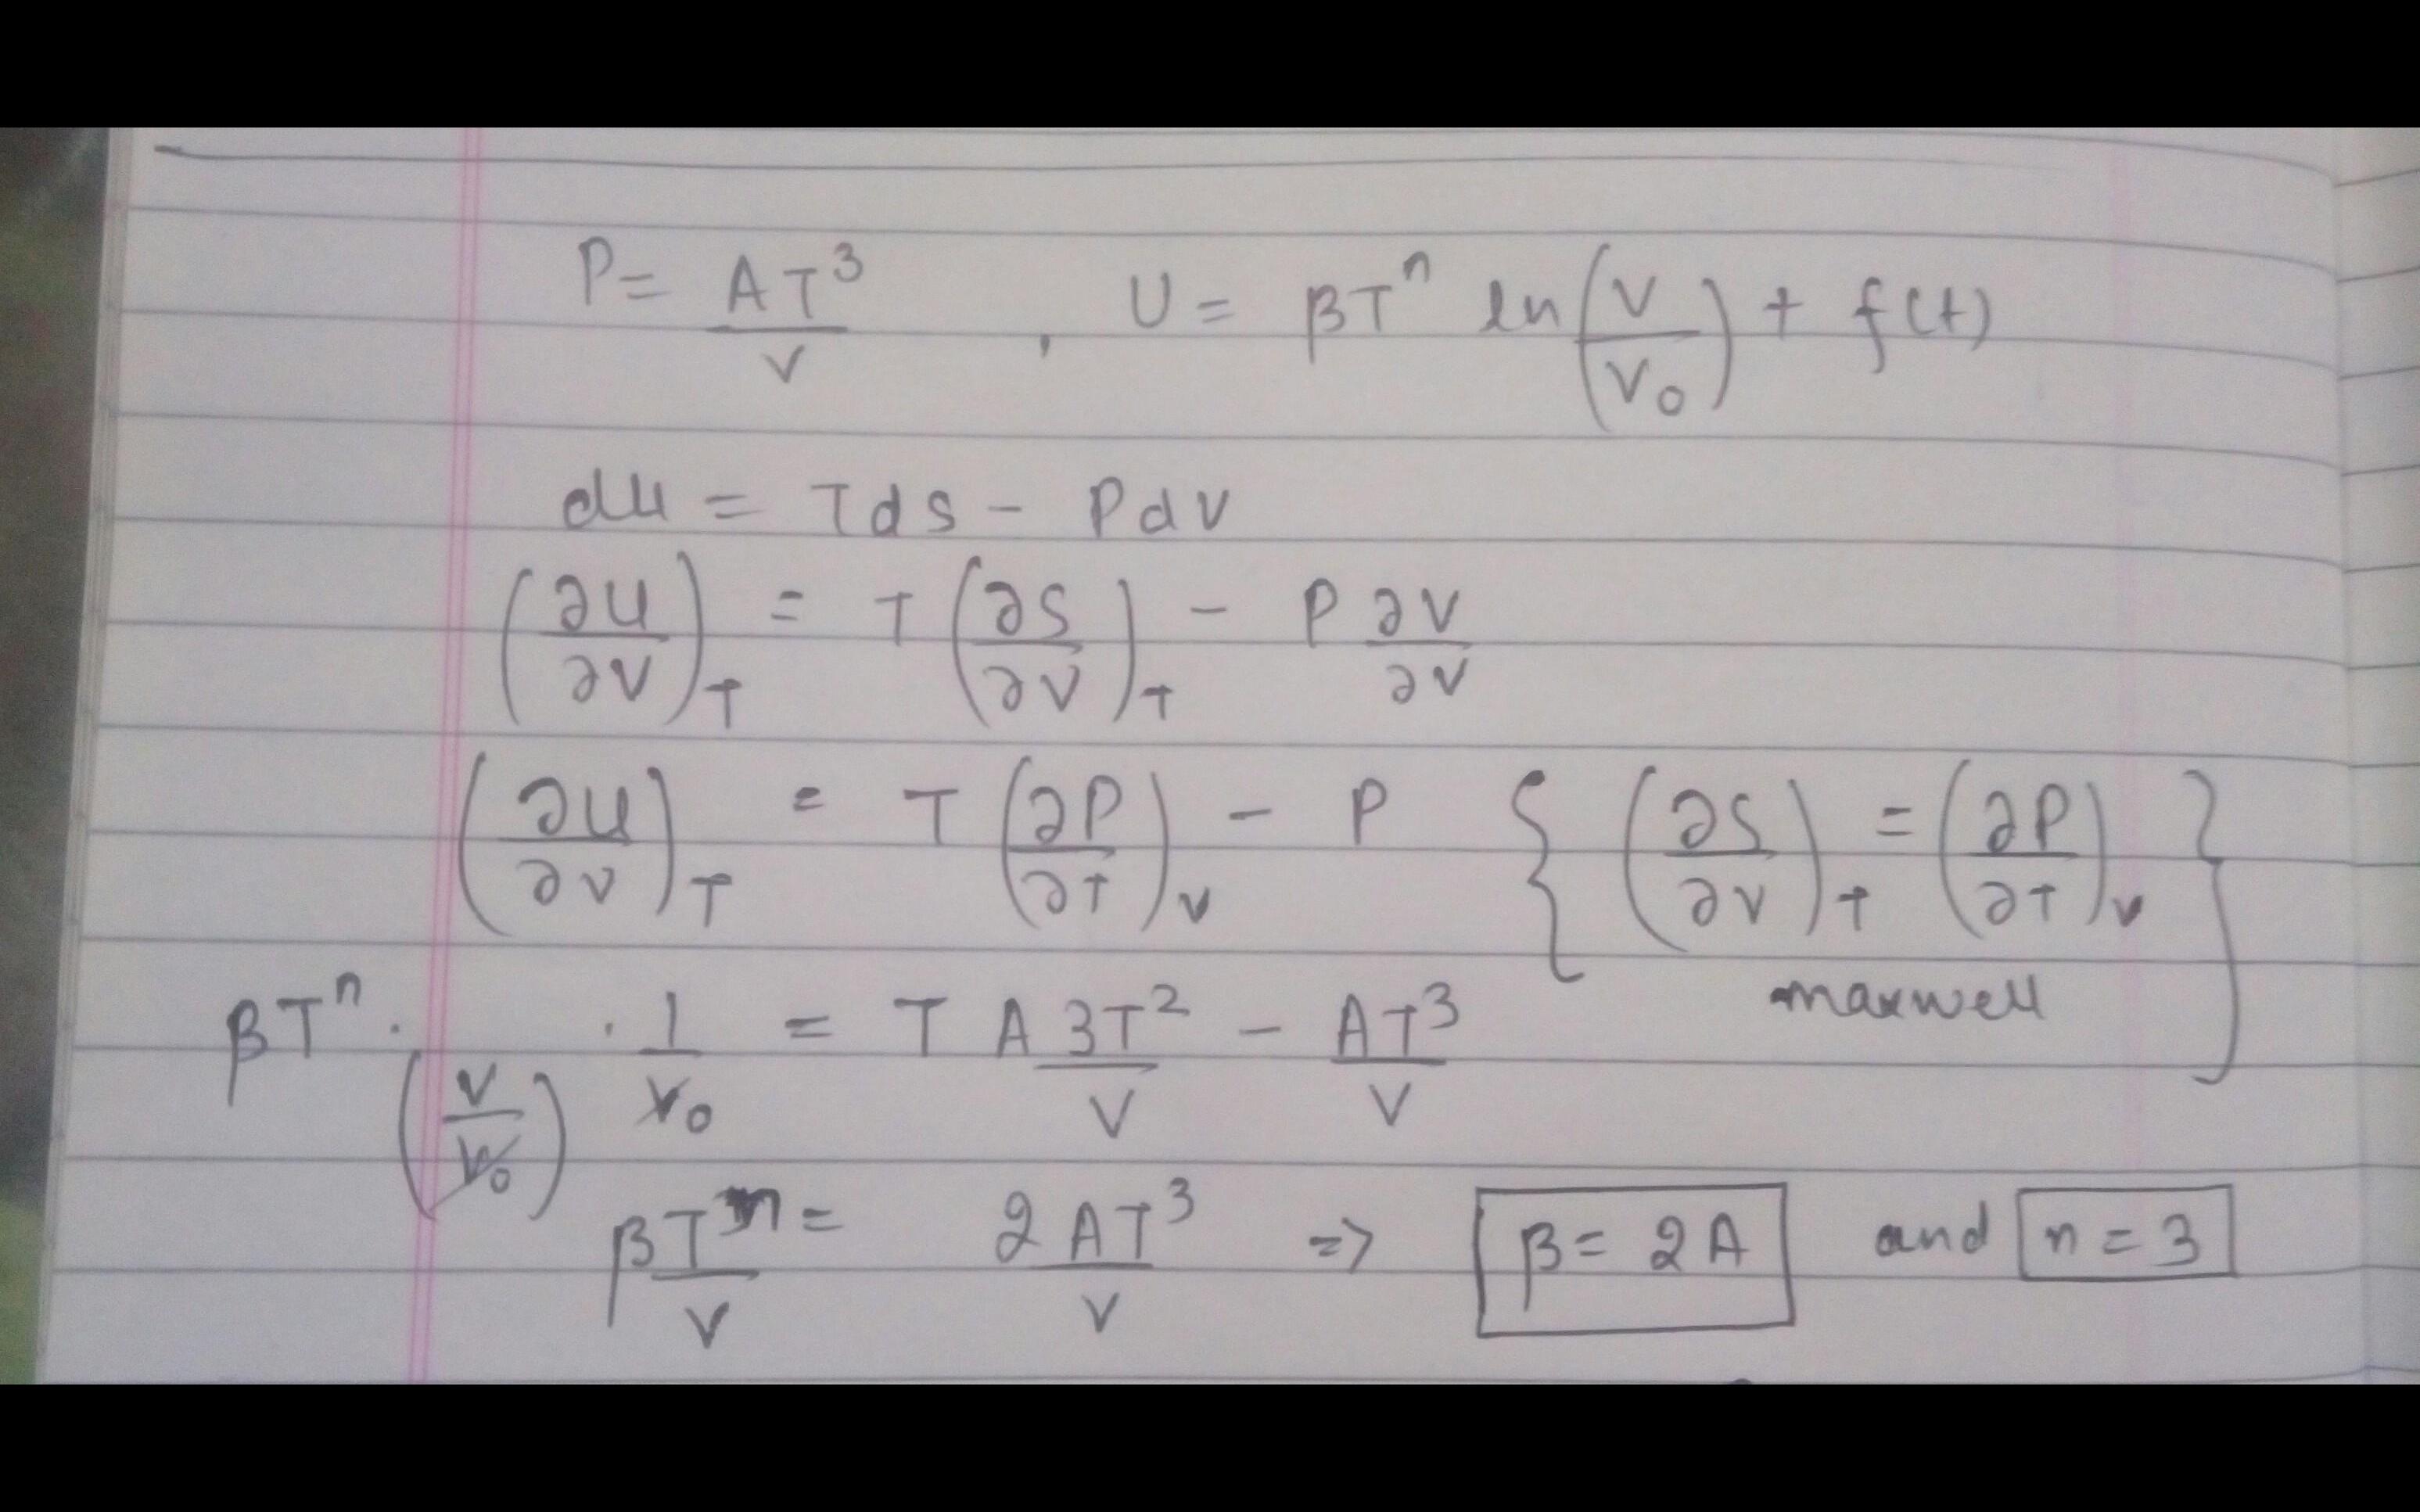 P = AT³/V , U = βTⁿ ln(V/V₀) + f(t)
du = Tds - Pdv
(∂U/∂V)_T = T(∂S/∂V)_T - P ∂V/∂V
(∂U/∂V)_T = T(∂P/∂T)_V - P {(∂S/∂V)_T = (∂P/∂T)_V}
maxwell
βTⁿ · 1/(V/V₀) · 1/V₀ = T A 3T²/V - AT³/V
βTⁿ/V = 2AT³/V => β = 2A and n = 3